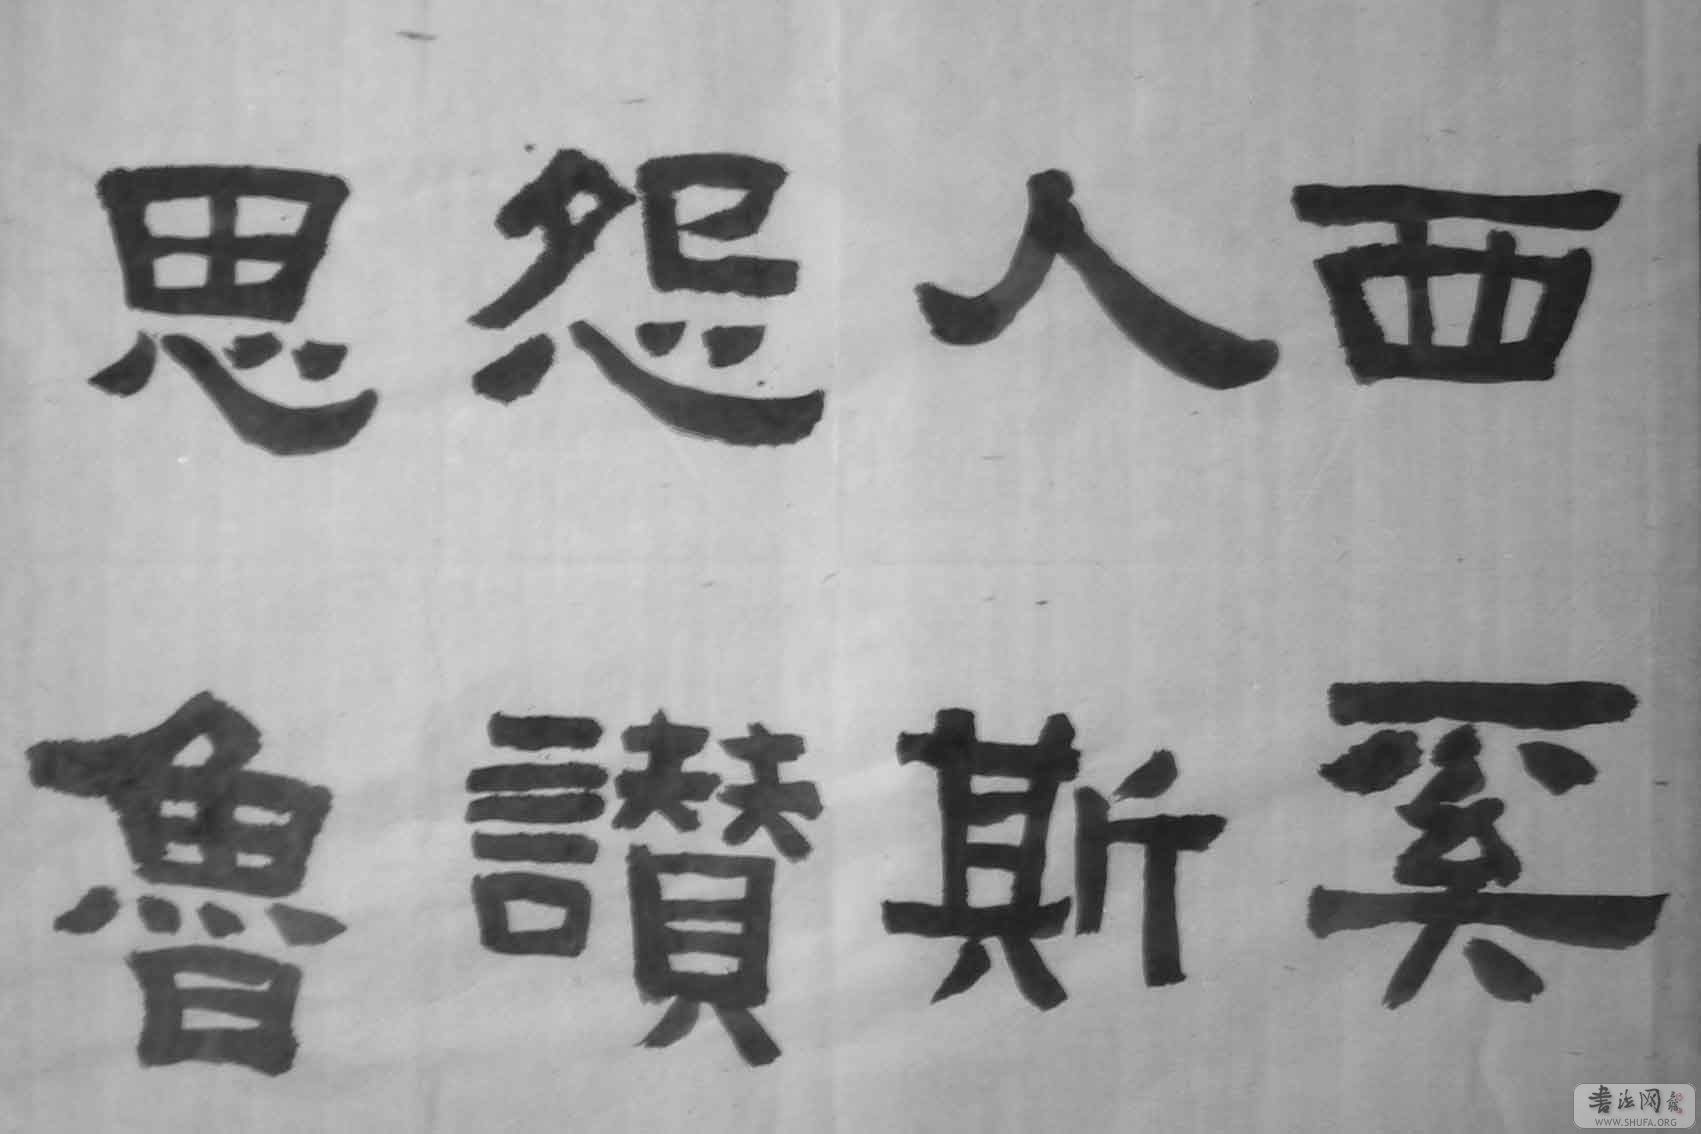 西人怨思
奚斯讚魯
書法网
WWW.SHUFA.ORG